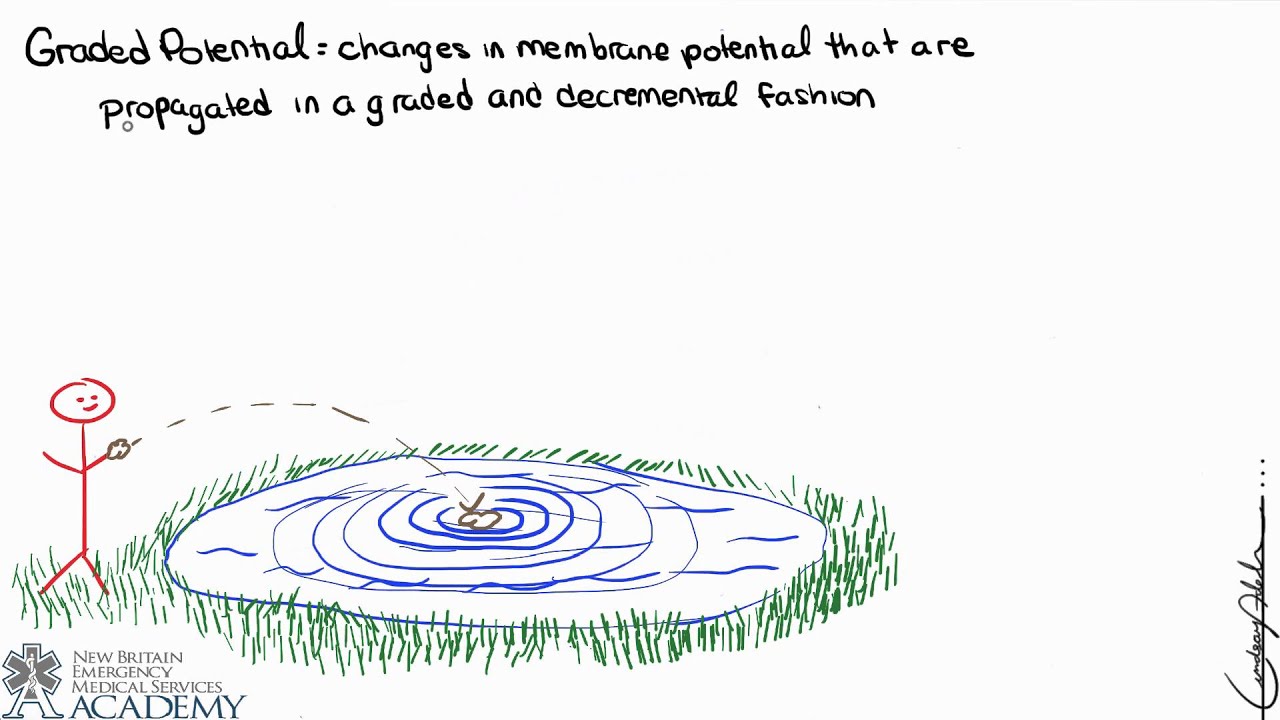 Graded Potential = changes in membrane potential that are
propagated in a graded and decremental fashion
NEW BRITAIN
EMERGENCY
MEDICAL SERVICES
ACADEMY
Lindsay